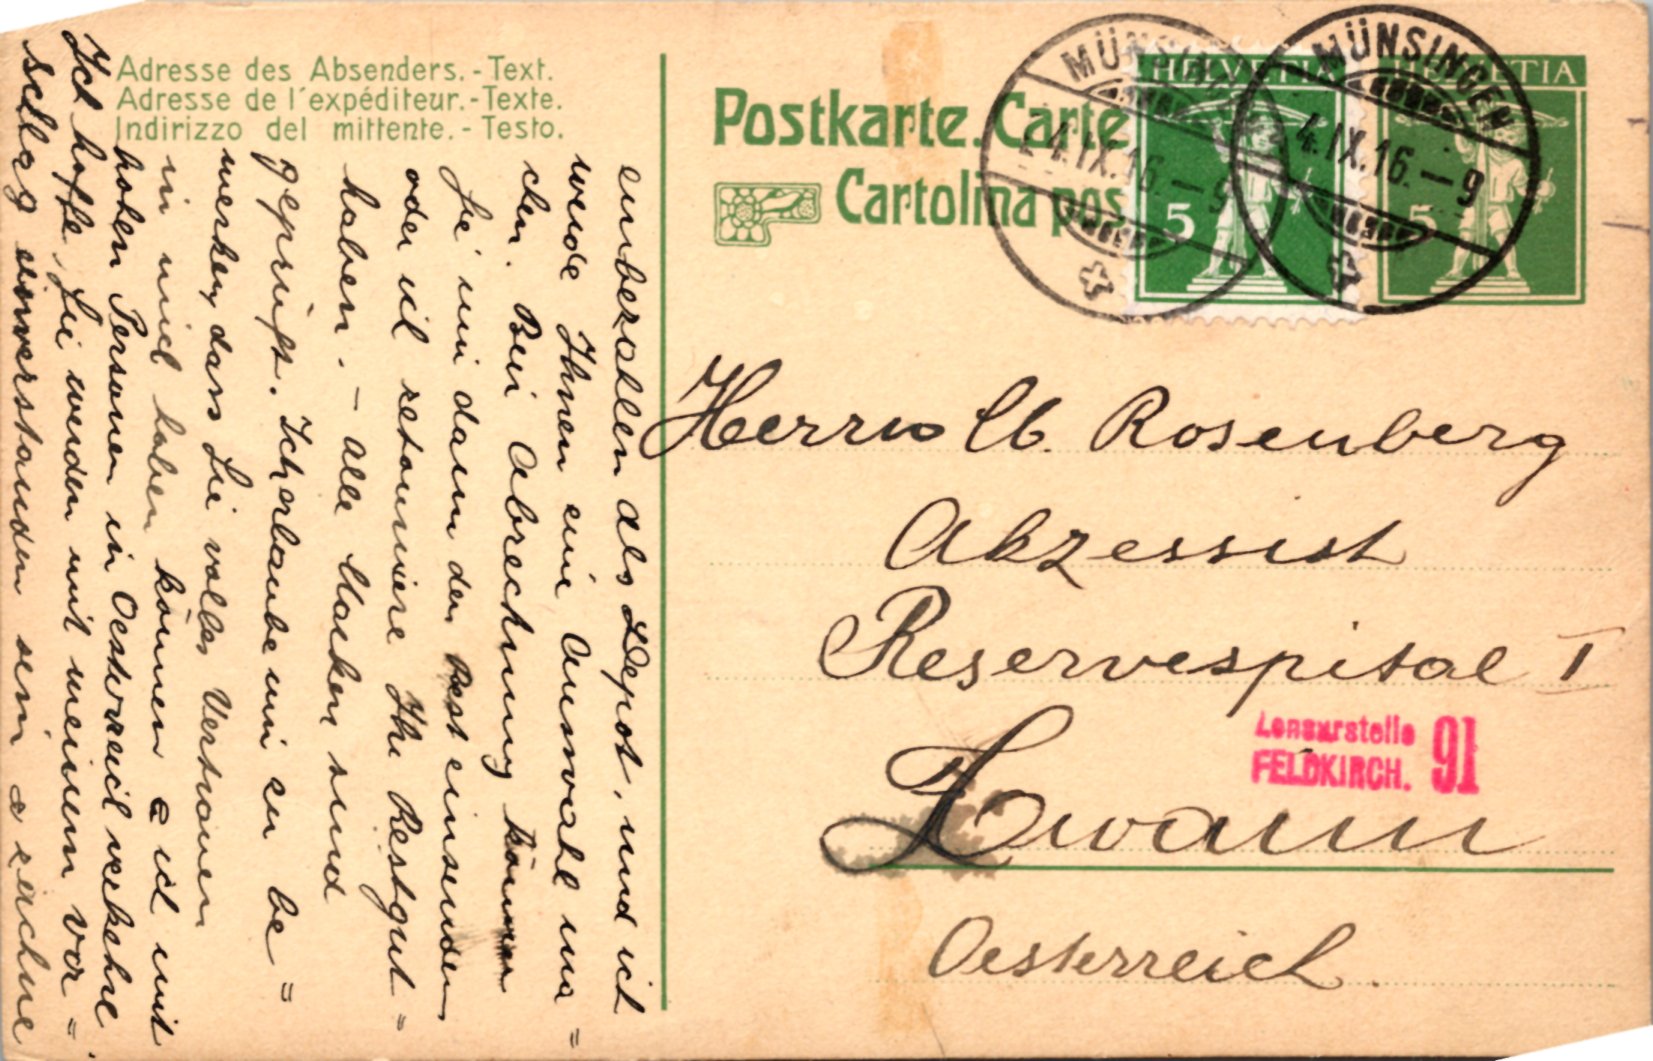 Adresse des Absenders. - Text.
Adresse de l'expéditeur. - Texte.
Indirizzo del mittente. - Testo.
Postkarte. Carte
Cartolina pos
MÜNSINGEN
4.IX.16.-9
HELVETIA
5
MÜNSINGEN
4.IX.16.-9
HELVETIA
5
Herrn Rosenberg
Akzessist
Reservespital I
Zensurstelle
FELDKIRCH. 91
Oesterreich.
einbezahlen als Depot, und ich
werde Ihnen eine Auswahl ma=
chen. Bei Abrechnung können
Sie mir dann den Rest einsenden
oder ich retourniere Ihr Restgut=
haben. - Alle Marken sind
geprüft. Ich erlaube mir zu be=
merken, dass Sie volles Vertrauen
in mich haben können & ich mit
hohen Personen in Oesterreich verkehre.
Ich hoffe, Sie werden mit meinem Vor=
schlag einverstanden sein & zeichne